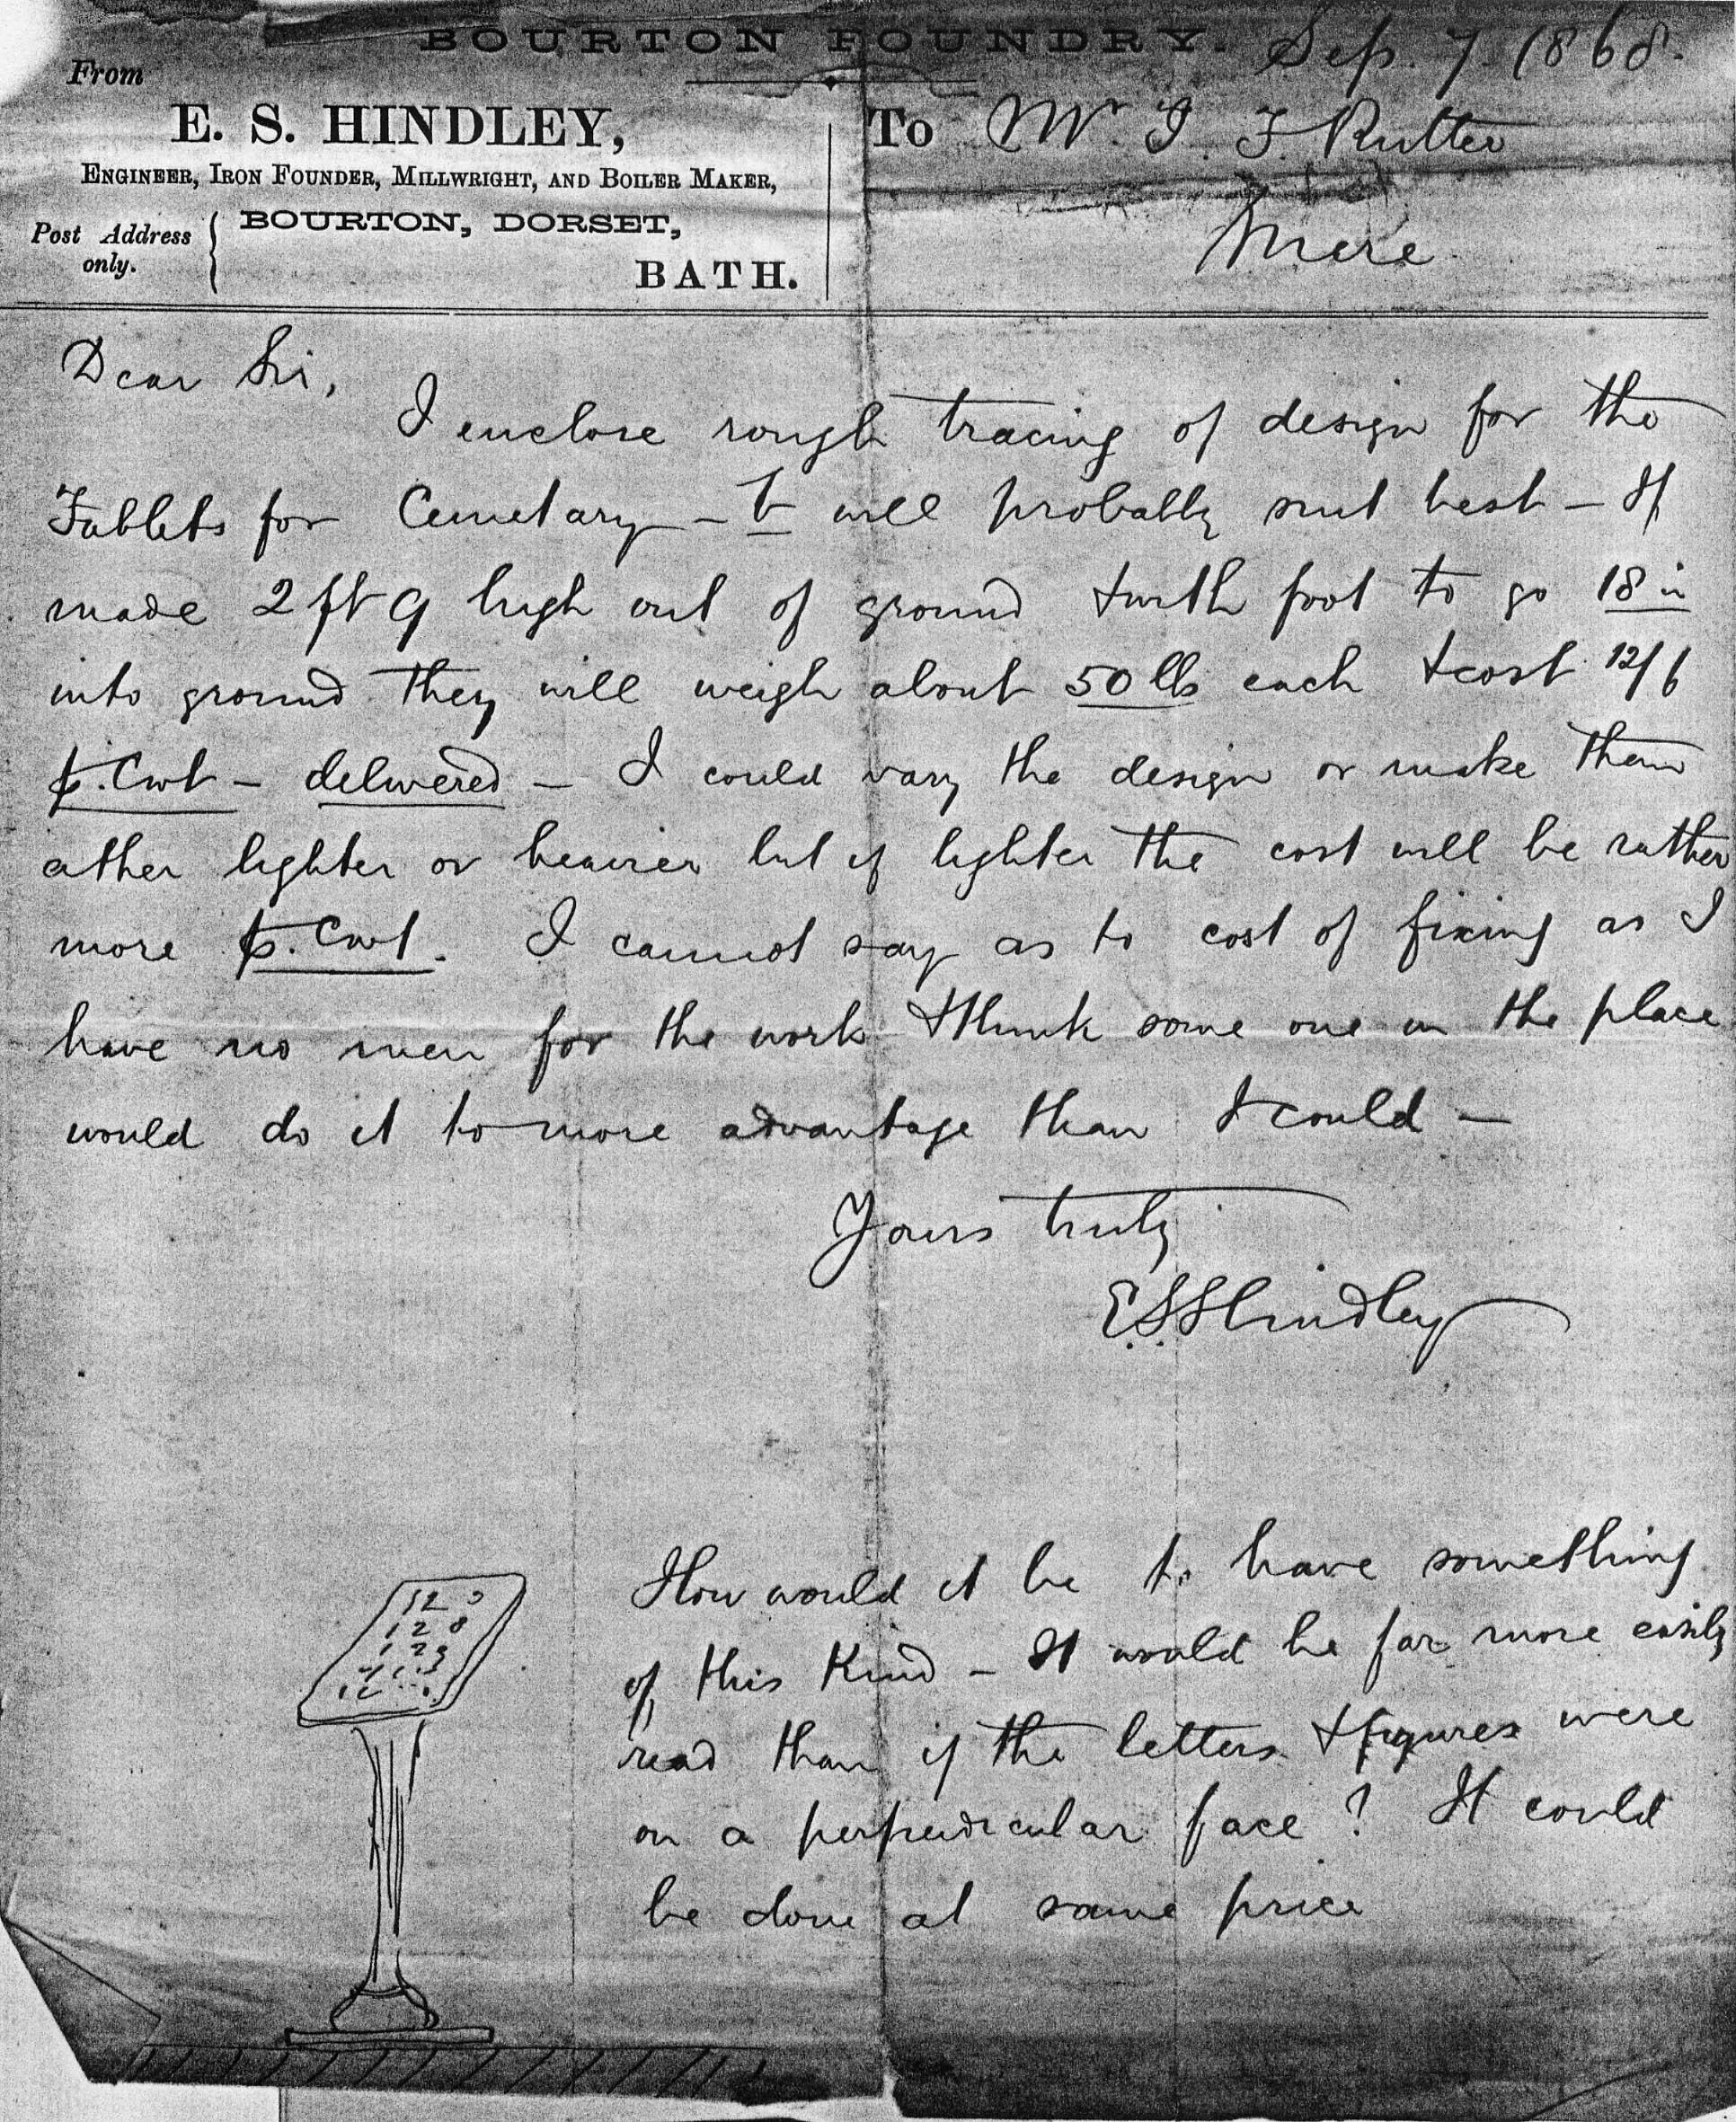 BOURTON FOUNDRY. Sep. 7. 1868.
From
E. S. HINDLEY,
ENGINEER, IRON FOUNDER, MILLWRIGHT, AND BOILER MAKER,
Post Address only. { BOURTON, DORSET,
BATH.
To Mr. J. F. Rutter
Mere
Dear Sir,
I enclose rough tracing of design for the
Tablets for Cemetary – b will probably suit best – If
made 2 ft 9 high out of ground & with foot to go 18 in
into ground they will weigh about 50 lbs each & cost 12/6
p. Cwt – delivered – I could vary the design or make them
either lighter or heavier but if lighter the cost will be rather
more p. Cwt. I cannot say as to cost of fixing as I
have no men for the work & think some one in the place
would do it to more advantage than I could –
Yours truly
E.S. Hindley
How would it be to have something
of this Kind – It would be far more easily
read than if the letters & figures were
on a perpendicular face ? It could
be done at same price
12
128
129